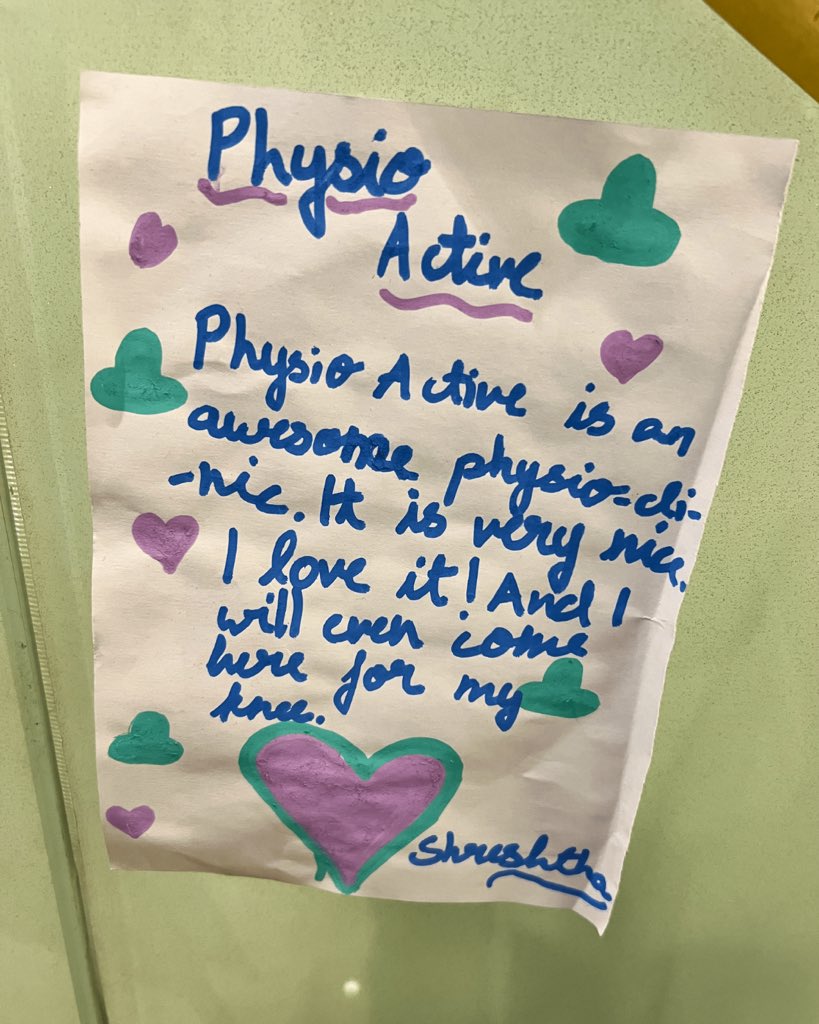 Physio
Active
Physio Active is an
awesome physio-cli-
-nic. It is very nice.
I love it! And I
will even come
here for my
knee.
Shreshtha